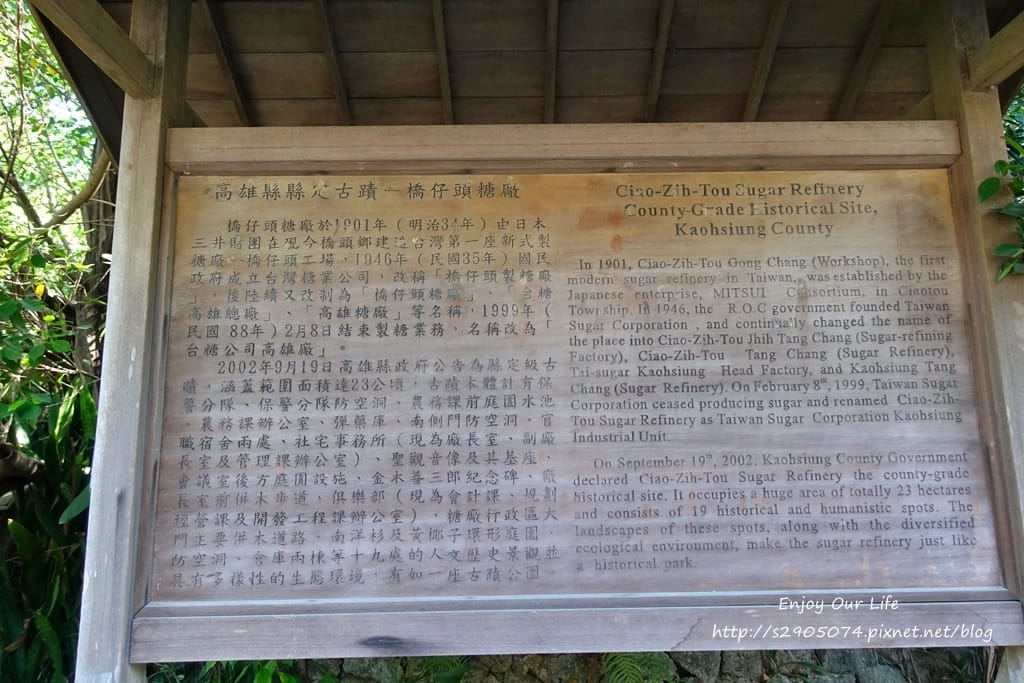 高雄縣縣定古蹟－橋仔頭糖廠
橋仔頭糖廠於1901年（明治34年）由日本
三井財團在現今橋頭鄉建造台灣第一座新式製
糖廠－橋仔頭工場，1946年（民國35年）國民
政府成立台灣糖業公司，改稱「橋仔頭製糖廠
」，後陸續又改制為「橋仔頭糖廠」、「台糖
高雄總廠」、「高雄糖廠」等名稱，1999年（
民國 88年）2月8日結束製糖業務，名稱改為「
台糖公司高雄廠」。
2002年9月19日高雄縣政府公告為縣定級古
蹟，涵蓋範圍面積達23公頃，古蹟本體計有保
警分隊、保警分隊防空洞、農務課前庭園水池
、農務課辦公室、彈藥庫、南側門防空洞、官
職宿舍兩處、社宅事務所（現為廠長室、副廠
長室及管理課辦公室）、聖觀音像及其基座、
會議室後方庭園設施、金木善三郎紀念碑、廠
長室前併木步道、俱樂部（現為會計課、規劃
經營課及開發工程課辦公室）、糖廠行政區大
門主要併木道路，南洋杉及黃椰子環形庭園、
防空洞、倉庫兩棟等十九處的人文歷史景觀並
具有多樣性的生態環境，有如一座古蹟公園。
Ciao-Zih-Tou Sugar Refinery
County-Grade Historical Site,
Kaohsiung County
In 1901, Ciao-Zih-Tou Gong Chang (Workshop), the first
modern sugar refinery in Taiwan, was established by the
Japanese enterprise, MITSUI Consortium, in Ciaotou
Township. In 1946, the R.O.C government founded Taiwan
Sugar Corporation , and continually changed the name of
the place into Ciao-Zih-Tou Jhih Tang Chang (Sugar-refining
Factory), Ciao-Zih-Tou Tang Chang (Sugar Refinery),
Tai-sugar Kaohsiung Head Factory, and Kaohsiung Tang
Chang (Sugar Refinery). On February 8th, 1999, Taiwan Sugar
Corporation ceased producing sugar and renamed Ciao-Zih-
Tou Sugar Refinery as Taiwan Sugar Corporation Kaohsiung
Industrial Unit.
On September 19th, 2002, Kaohsiung County Government
declared Ciao-Zih-Tou Sugar Refinery the county-grade
historical site. It occupies a huge area of totally 23 hectares
and consists of 19 historical and humanistic spots. The
landscapes of these spots, along with the diversified
ecological environment, make the sugar refinery just like
a historical park.
Enjoy Our Life
http://s2905074.pixnet.net/blog